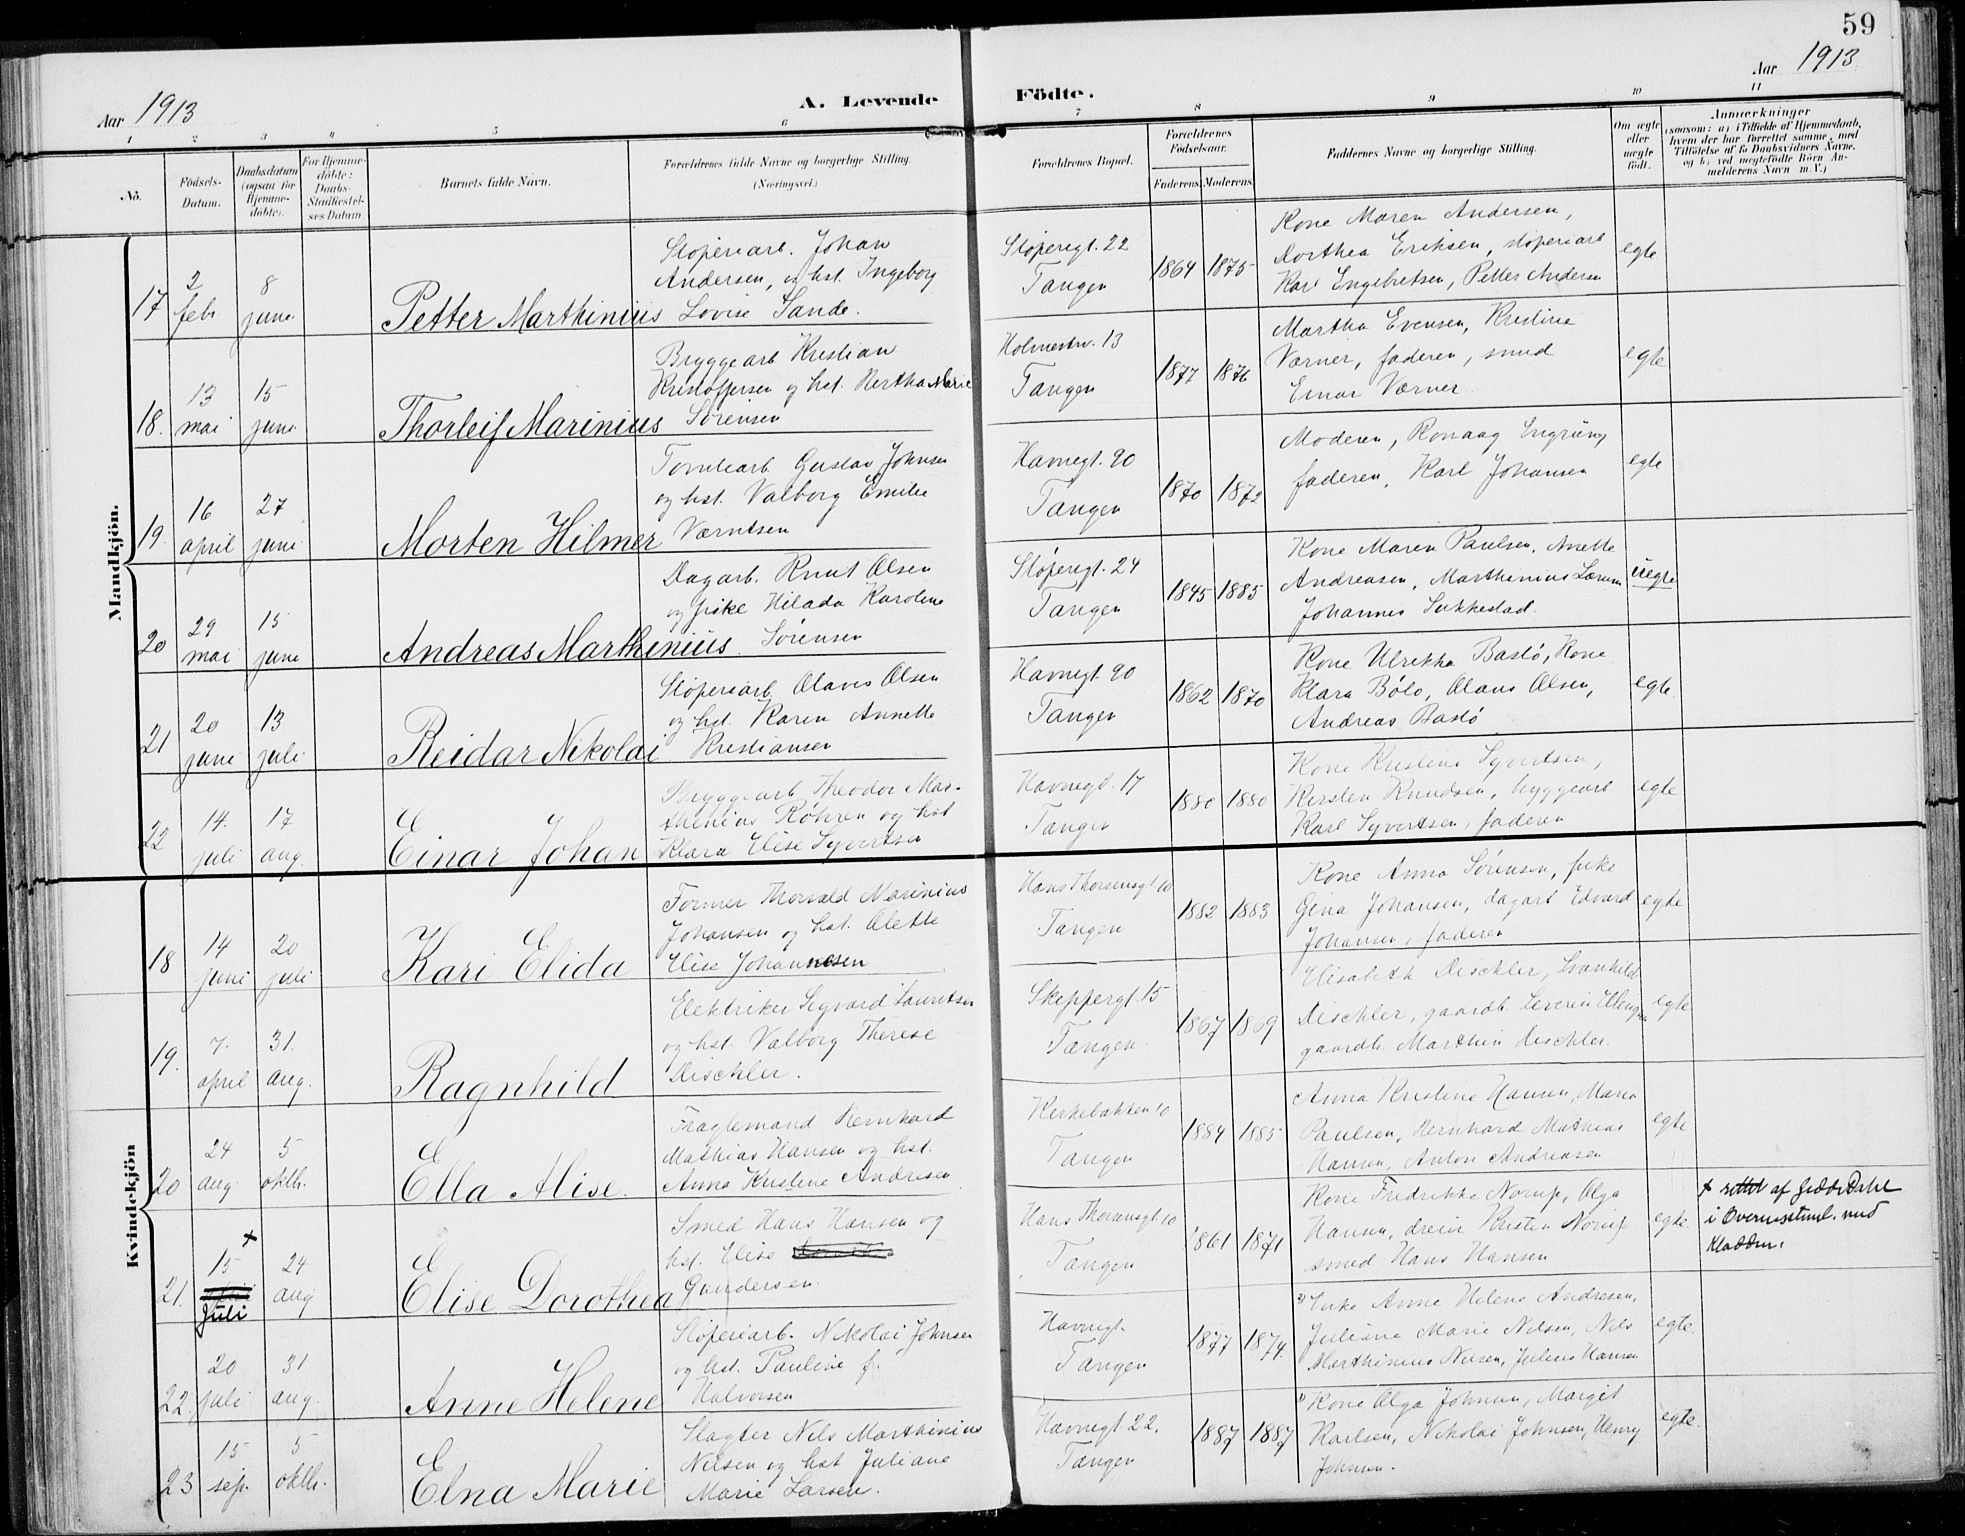 59
Aar 1913
A. Levende Födte.
Aar 1913
1 2 3 4 5 6 7 8 9 10 11
No.
Födsels-
Datum.
Daabsdatum
(ogsaa for
Hjemme-
döbte).
For Hjemme-
döbte:
Daabs-
Stadfæstel-
ses Datum.
Barnets fulde Navn.
Forældrenes fulde Navne og borgerlige Stilling.
(Næringsvei.)
Forældrenes Bopæl.
Forældrenes
Födselsaar.
Faderens. Moderens.
Faddernes Navne og borgerlige Stilling.
Om ægte
eller
uægte
födt.
Anmærkninger
(saasom: a) i Tilfælde af Hjemmedaab,
hvem der har forrettet samme, med
Tilföielse af to Daabsvidners Navne,
og b) ved uægtefödte Börn An-
melderens Navn m. V.)
Mandkjön.
17
2
febr
8
juni
Petter Marthinius
Støperiarb. Johan
Andersen, og hst. Ingeborg
Lovise Sande.
Støperegt. 22
Tangen
1864 1875
Kone Maren Andersen,
Dorthea Eriksen, støperiarb
Karl Engebretsen, Petter Andersen
egte
18.
13
mai
15
juni
Thorleif Marinius
Bryggearb Kristian
Kristoffersen og hst. Bertha Marie
Sørensen
Holmestrv. 13
Tangen
1877 1876
Martha Evensen, Kristine
Værner, faderen, smed
Einar Værner
egte
19.
16
april
27
juni
Morten Hilmer
Tomtearb Gustav Johnsen
og hst. Valborg Emilie
Værntsen
Havnegt. 90
Tangen
1870 1872
Moderen,
faderen, Karl Johansen
egte
20
29
mai
15
juni
Andreas Marthinius.
Dagarb. Knut Olsen
og pike Karoline
Sørensen
Støperegt. 24
Tangen
1845 1885
Kone Maren Paulsen, Anette
Andreasen, Marthinius
Johannes
uegte
21
20
juni
13
juli
Reidar Nikolai
Støperiarb Olaves Olsen
og hst. Karen Annette
Kristiansen
Havnegt 90
Tangen
1862 1870
Kone Ulrikke Bastø, Kone
Klara Bölo, Olaus Olsen,
Andreas Bastø
egte
22
14.
juli
17
aug.
Einar Johan
Bryggearb Theodor Mar-
thinius Röhren og hst
Klara Elise Syvertsen
Havnegt. 17
Tangen
1880 1880
Kone Kristine Syvertsen,
Kirsten Knudsen, bryggearb
Karl Syvertsen, faderen
egte
Kvindekjön
18
14
juni
20
juli
Kari Elida
Former Thorvald Marinius
Johansen og hst. Alette
Elise Johannesen
Hans Thorsensgt 10
Tangen
1882 1883
Kone Anna Sørensen, pike
Gina Johansen, dagarb Edvard
Johansen, faderen
egte
19.
7.
april
31.
aug.
Ragnhild
Elektriker Sigvard Lauritsen
og hst. Valborg Therese
Dischler.
Skeppergt. 15
Tangen.
1867 1869
Elisabeth Dischler, Svanhild
Dischler, gaardb. Severin
gaardb. Marthin Dischler.
egte
20
24
aug
5
oktb.
Ella Alise.
Fraglemand Bernhard
Mathias Hansen og hst.
Anna Kristine Andresen
Kirkebakken 10
Tangen
1884 1885
Anna Kristine Hansen, Maria
Paulsen, Bernhard Mathias
Hansen, Anton Andreasen
egte
21.
15 x
Juli
24
aug
Elise Dorothea
Smed Hans Hansen og
hst. Elise
Gundersen.
Hans Thorsensgt. 10
Tangen
1861 1871
Kone Fredrikke Norup, Olga
Hansen, dreier Kristen Norup
smed Hans Hansen
egte.
x rettet af
i Overensstml. med
Kladden.
22.
20
juli
31
aug.
Anne Helene
Støperiarb. Nikolai Johnsen
og hst. Pauline f.
Halvorsen
Havnegt.
Tangen
1877 1874.
Anne Helene Andresen,
Juliane Marie Nilsen, Nils
Marthinius Nilsen, Julius Hansen
egte.
23
15
sep.
5
oktb.
Elna Marie
Slagter Nils Marthinius
Nilsen og hst Juliane
Marie Larsen.
Havnegt 22.
Tangen
1887 1887
Kone Olga Johnsen, Margit
Karlsen, Nikolai Johnsen, Henry
Johnsen.
egte.